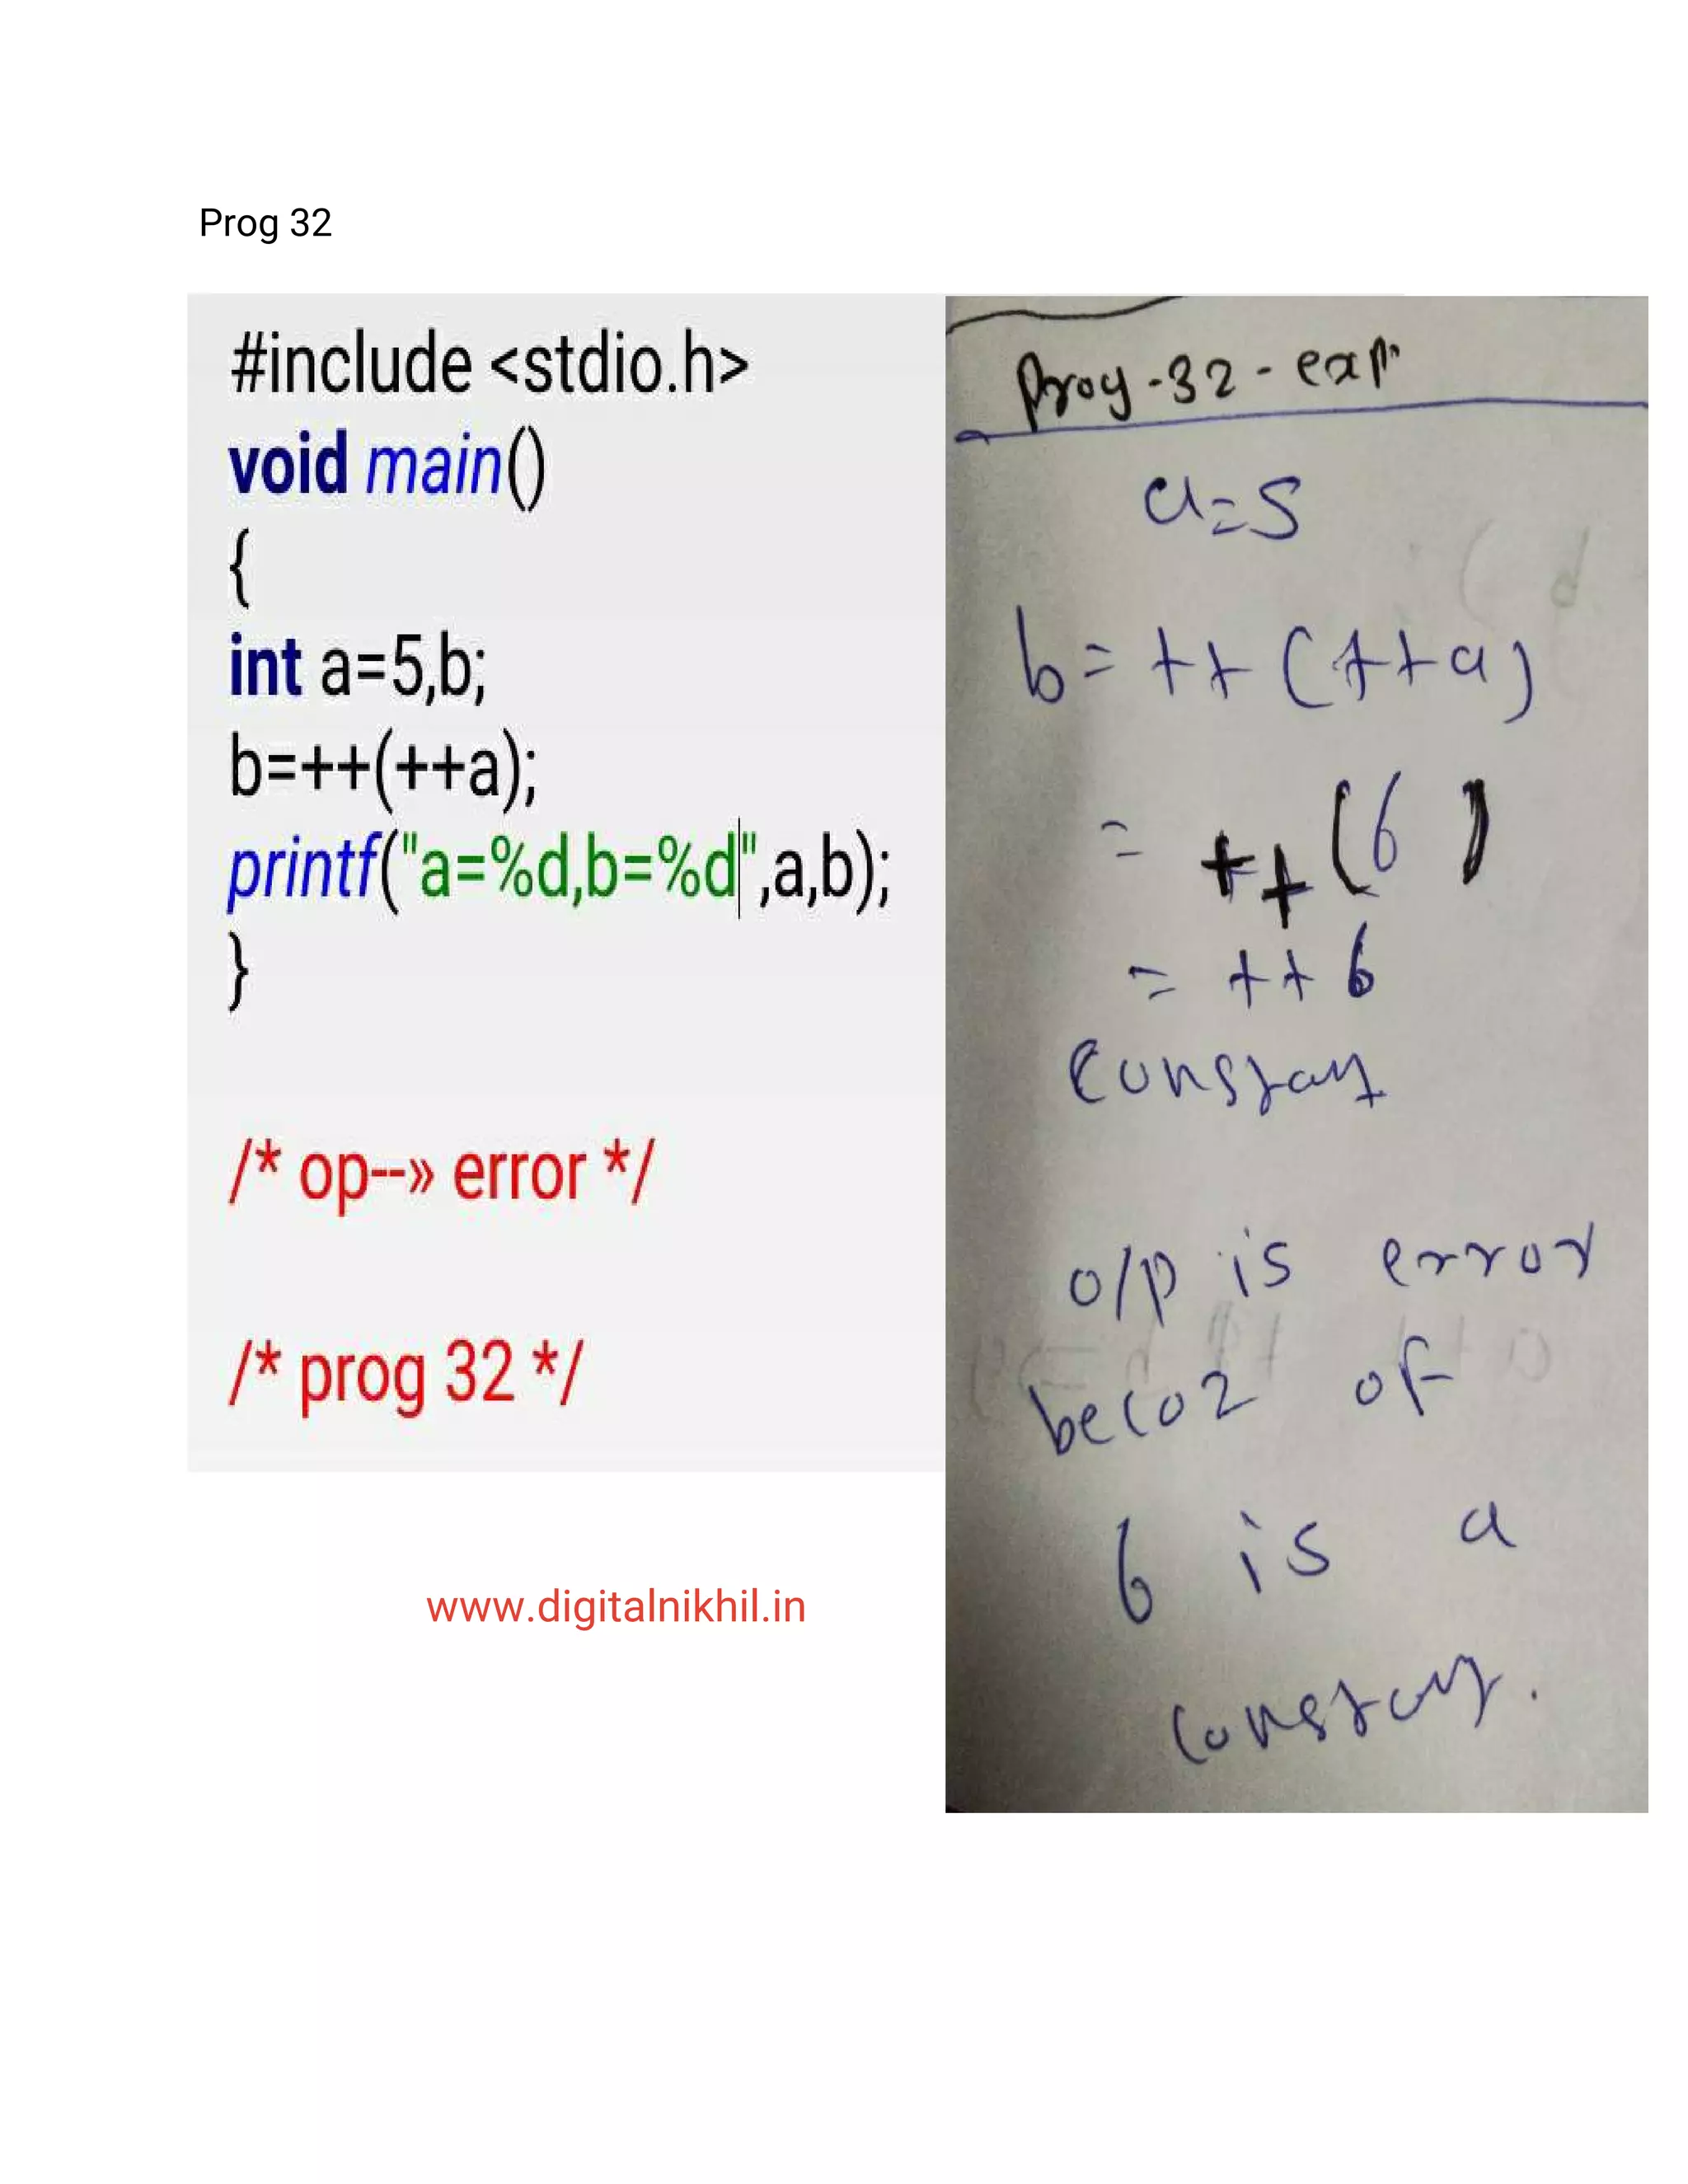 Prog 32
#include <stdio.h>
void main()
{
int a=5,b;
b=++(++a);
printf("a=%d,b=%d",a,b);
}
/* op--» error */
/* prog 32 */
www.digitalnikhil.in
Prog-32-exp
a=5
b=++(++a)
=++(6)
=++6
constant
o/p is error
becoz of
6 is a
constant.